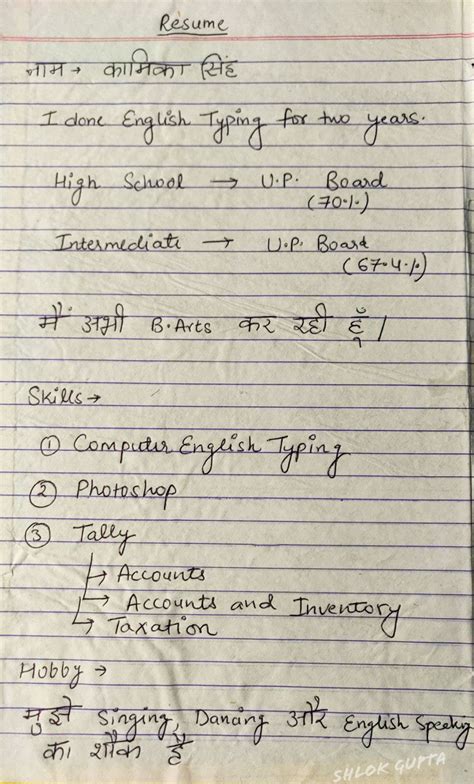 Resume
नाम → कामिका सिंह
I done English Typing for two years.
High School → U.P. Board
(70%)
Intermediate → U.P. Board
(67.4%)
मैं अभी B.Arts कर रही हूँ।
Skills →
① Computer English Typing
② Photoshop
③ Tally
↳ Accounts
↳ Accounts and Inventory
↳ Taxation
Hobby →
मुझे Singing, Dancing और English Speekig
का शौक है
SHLOK GUPTA